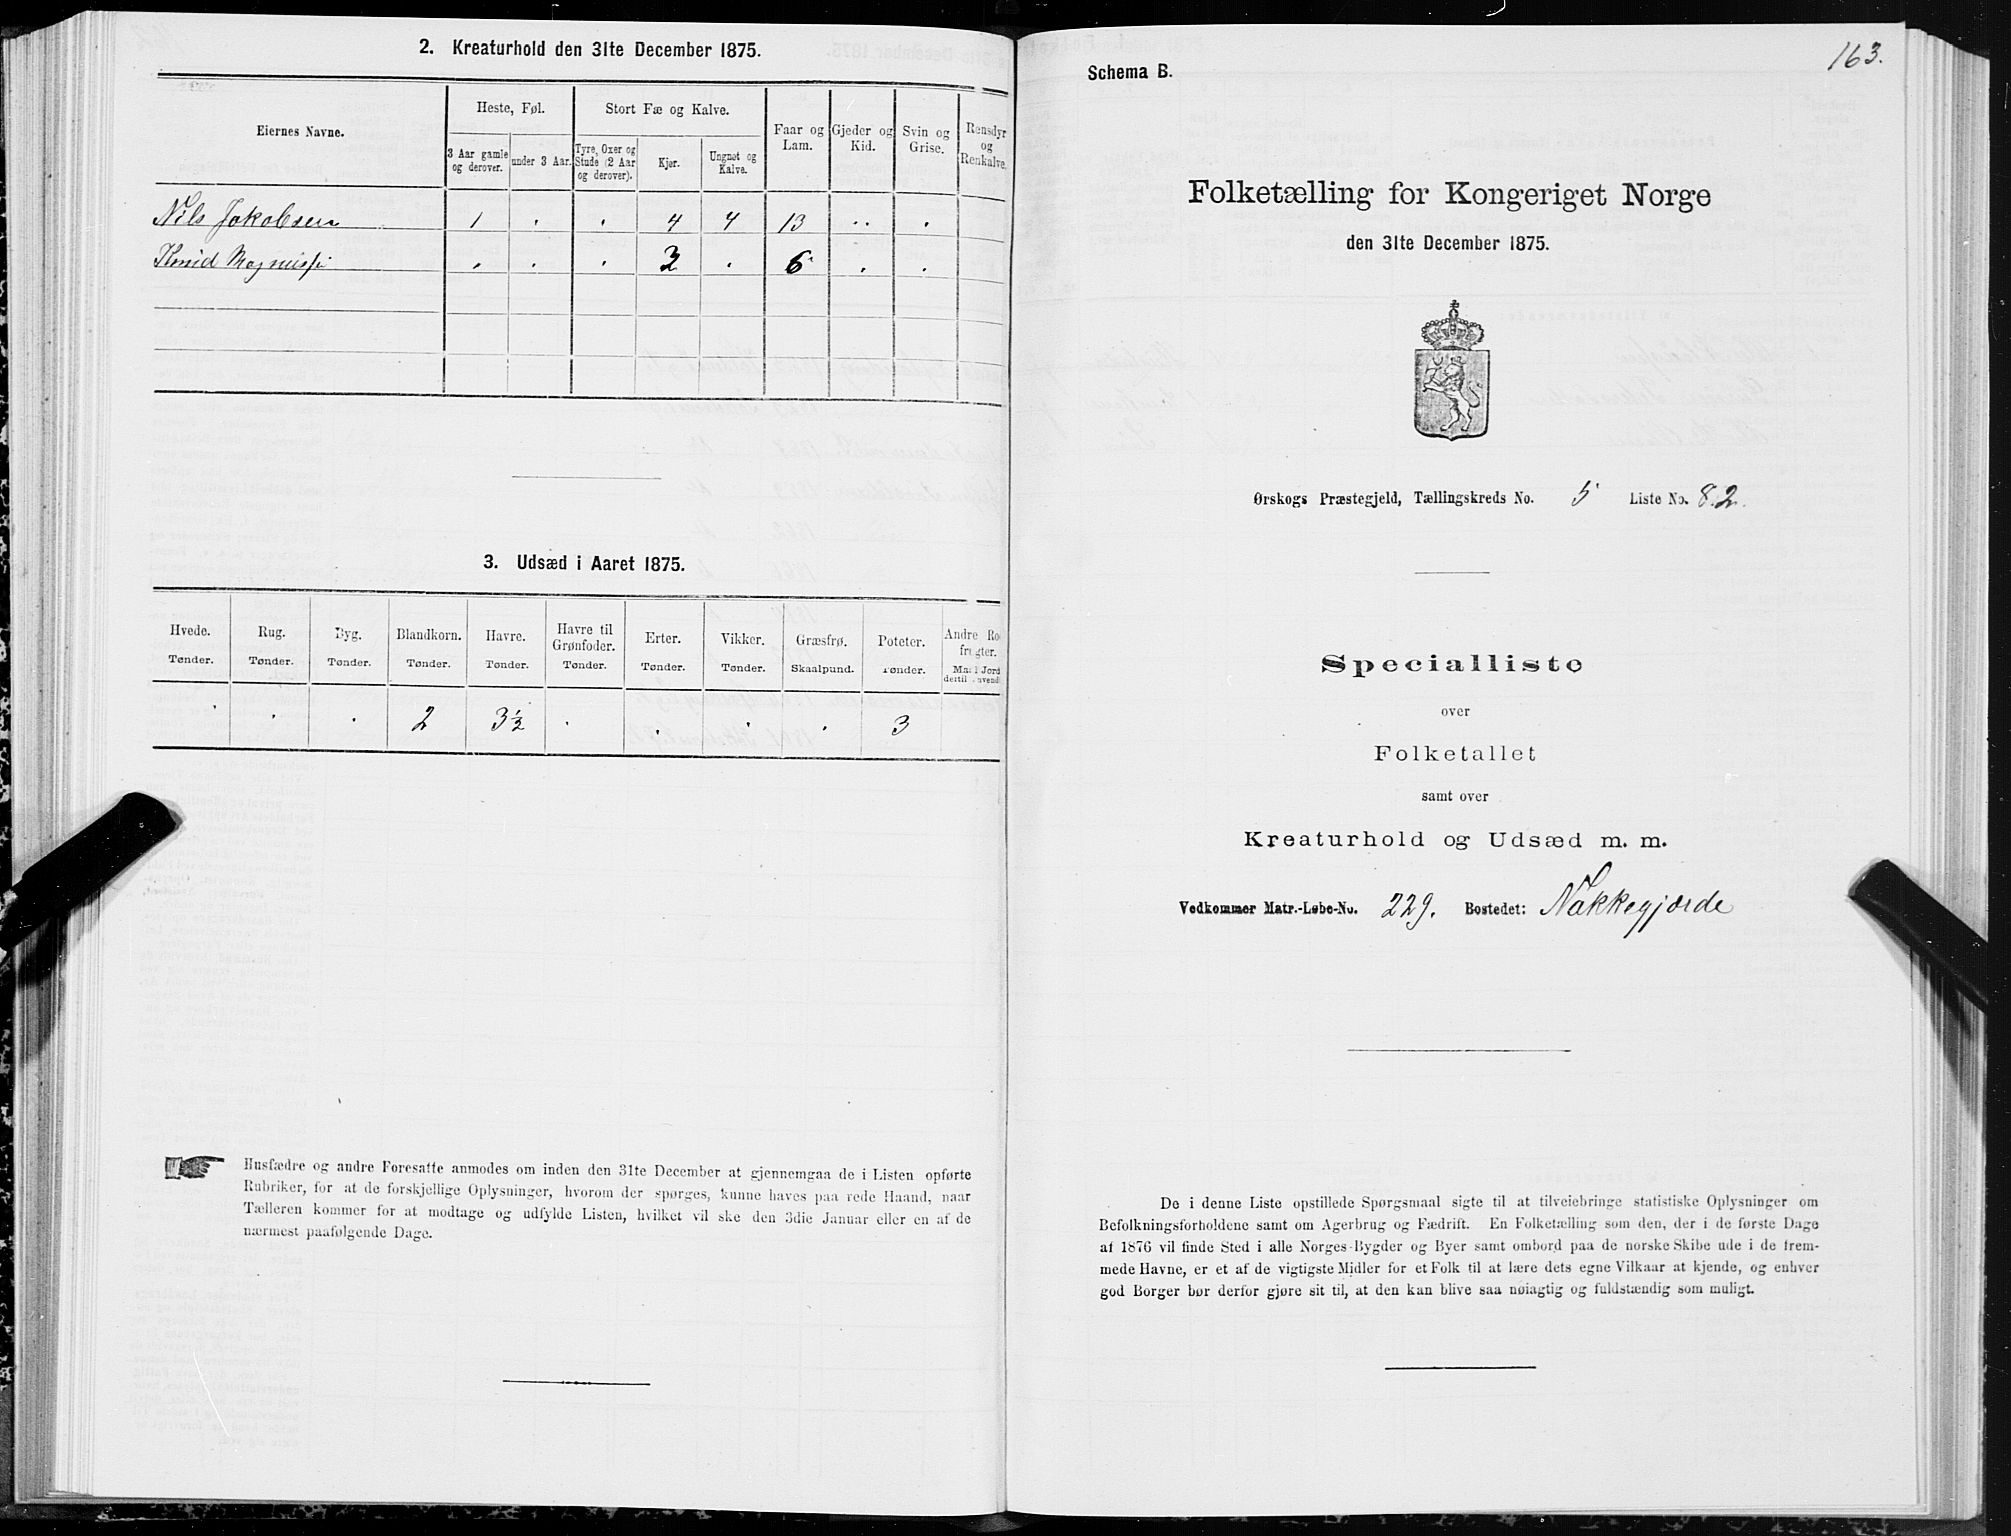 2. Kreaturhold den 31te December 1875.
Eiernes Navne.
Heste, Føl.
Stort Fæ og Kalve.
Faar og Lam.
Gjeder og Kid.
Svin og Grise.
Rensdyr og Renkalve.
3 Aar gamle og derover.
under 3 Aar.
Tyre, Oxer og Stude (2 Aar og derover).
Kjør.
Ungnøt og Kalve.
Nils Jakobsen 1 . . 4 4 13 .. .
Knud . . . . 6 . .
3. Udsæd i Aaret 1875.
Hvede. Rug. Byg. Blandkorn. Havre. Havre til Grønfoder. Erter. Vikker. Græsfrø. Poteter. Andre Ro
frugter.
Tønder. Tønder. Tønder. Tønder. Tønder. Tønder. Tønder. Tønder. Skaalpund. Tønder. Maal Jord
dertil
. . . 2 3½ . . . . 3
Husfædre og andre Foresatte anmodes om inden den 31te December at gjennemgaa de i Listen opførte
Rubriker, for at de forskjellige Oplysninger, hvorom der spørges, kunne haves paa rede Haand, naar
Tælleren kommer for at modtage og udfylde Listen, hvilket vil ske den 3die Januar eller en af de
nærmest paafølgende Dage.
163.
Schema B.
Folketælling for Kongeriget Norge
den 31te December 1875.
Ørskogs Præstegjeld, Tællingskreds No. 5 Liste No. 82.
Specialliste
over
Folketallet
samt over
Kreaturhold og Udsæd m. m.
Vedkommer Matr.-Løbe-No. 229. Bostedet: Nakkegjærde
De i denne Liste opstillede Spørgsmaal sigte til at tilveiebringe statistiske Oplysninger om
Befolkningsforholdene samt om Agerbrug og Fædrift. En Folketælling som den, der i de første Dage
af 1876 vil finde Sted i alle Norges Bygder og Byer samt ombord paa de norske Skibe ude i de frem-
mede Havne, er et af de vigtigste Midler for et Folk til at lære dets egne Vilkaar at kjende, og enhver
god Borger bør derfor gjøre sit til, at den kan blive saa nøiagtig og fuldstændig som muligt.